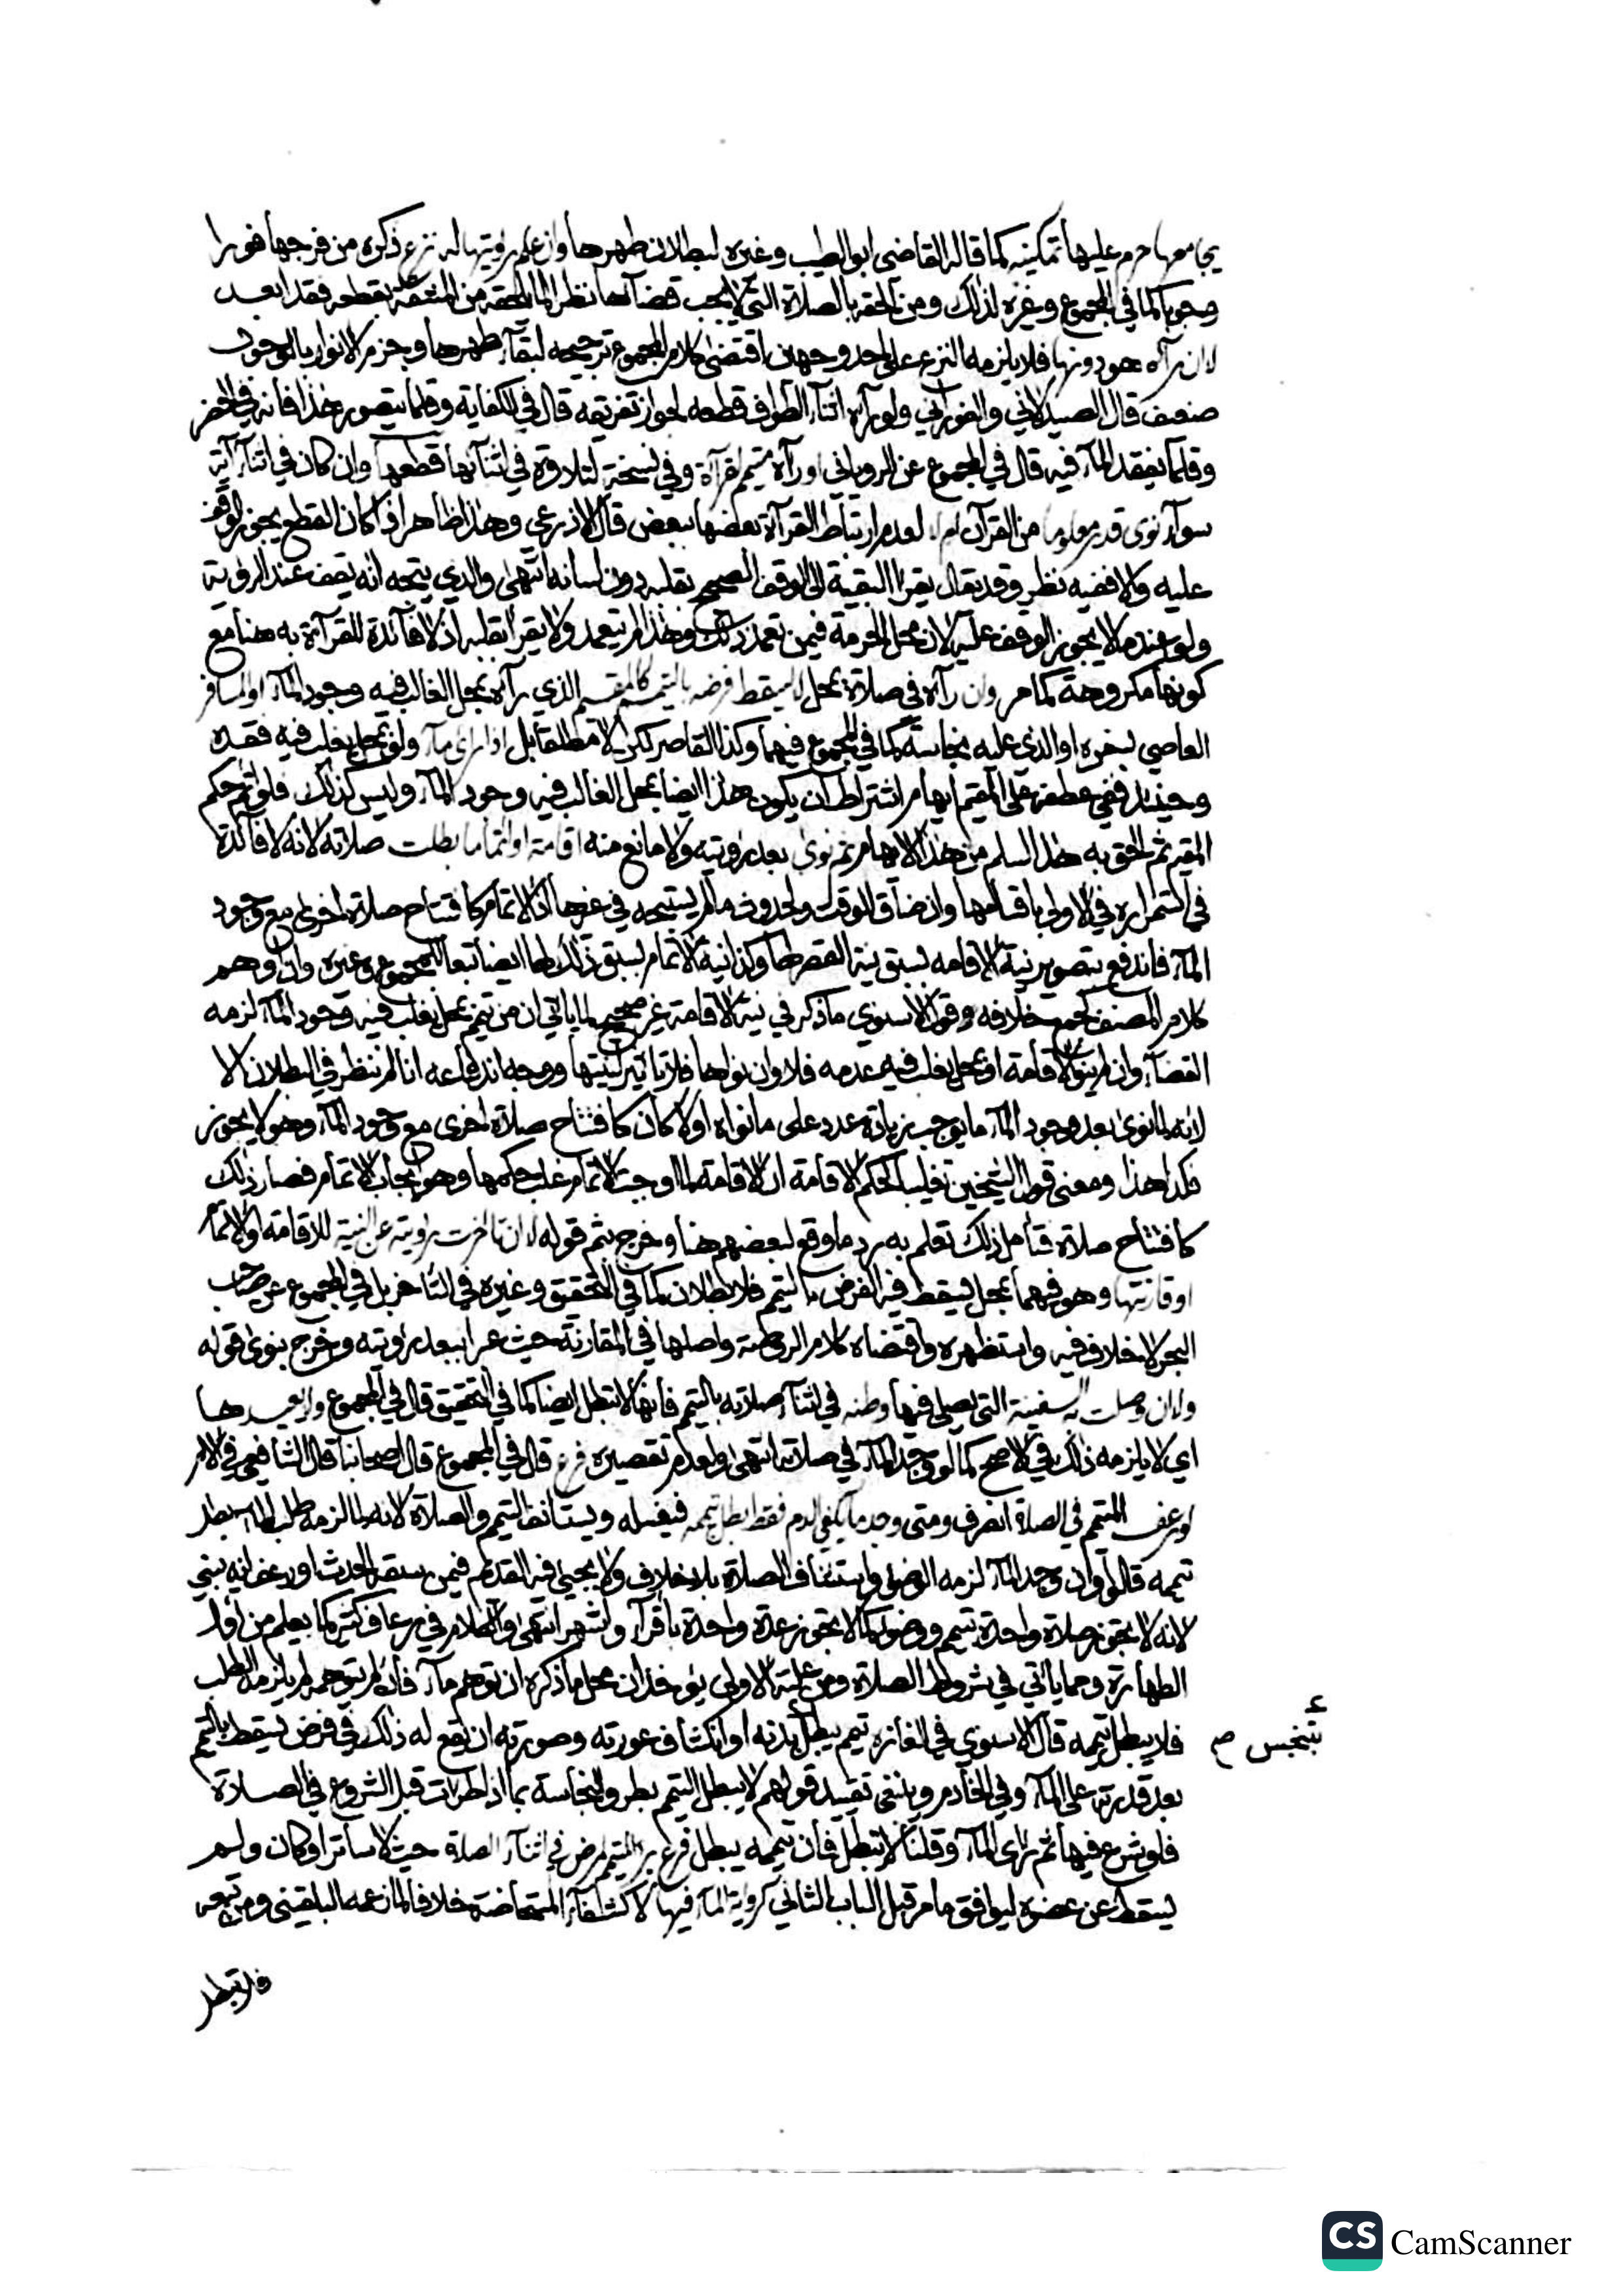 يجامعها حرم عليها تمكينه كما قاله القاضي ابو الطيب وغيره لبطلان طهرها وان علم برؤيتها له نزع ذكره من فرجها فورا
وجوبا كما في المجموع وغيره لذلك ومن الحقه بالصلاة التي لا يجب قضآءها نظرا لما يلحقه من المشقة بقطعه فقد ابعد
لا ان رآه هو دونها فلا يلزمه النزع على احد وجهين اقتضى كلام المجموع ترجيحه لبقآء طهرها وجزم الانوار بالوجوب
ضعيف قال الصيدلاني والفوراني ولو رآه اثنآء الطواف قطعه لجواز تفريقه قال في الكفاية وقلما يتصور هذا فانه في الحضر
وقلما يفقد المآء فيه قال في المجموع عن الروياني او رآه متيمم لقرآة وفي نسخة لتلاوة في اثنآئها قطعها وان كان في اثنآء آية
سوآء نوى قدر معلوما من القرآن ام لا لعدم ارتباط القرآة بعضها ببعض قال الاذرعي وهذا ظاهر اذا كان القطع يجوز الوقف
عليه والا ففيه نظر وقد يقال يقرا البقية الى الوقف الصحيح بقلبه دون لسانه انتهى والذي يتجه انه يقف عند الرؤية
ولو عند ما لا يجوز الوقف عليه لان محل الحرمة فيمن تعمد ذلك وهذا لم يتعمد ولا يقرأ بقلبه اذ لا فآئدة للقرآة به هنا مع
كونها مكروهة كما مر وان رآه في صلاة بمحل لا يسقط فرضه بالتيمم كالمقيم الذي رآه بمحل الغالب فيه وجود المآء او المسافر
العاصي بسفره او الذي عليه نجاسة كما في المجموع فيهما وكذا القاصر لكن لا مطلقا بل اذا رأى مآء ولو بمحل يغلب فيه فقده
وحينئذ ففي عطفه على المقيم ايهام اشتراط ان يكون هذا ايضا بمحل الغالب فيه وجود المآء وليس كذلك فلو تمم حكم
المقيم ثم الحق به هذا السلم من هذا الايهام ثم نوى بعد رؤيته ولا مانع منه اقامة او اتماما بطلت صلاته لانه لا فآئدة
في استمراره في الاولى باقسامها وان ضاق الوقت ولحدوث ما لم يستبحه في غيرها اذ الاتمام كافتتاح صلاة اخرى مع وجود
المآء فاندفع بتصوير نية الاقامه بسبق نية القصر لها وكذا نية الاتمام لسبق ذلك لها ايضا تبعا للمجموع وغيره وان اوهم
كلام المصنف كجمع خلافه وقول الاسنوي ما ذكر في نية الاقامة غير صحيح لما ياتي ان من تيمم بمحل يغلب فيه وجود المآء لزمه
القضآء وان لم ينو الاقامة او بمحل يغلب فيه عدمه فلا وان نواها فلا تاثير لنيتها ووجه اندفاعه انا لم ننظر في البطلان الا
لانه لما نوى بعد وجود المآء ما يوجب زيادة عدد على ما نواه اولا كان كافتتاح صلاة اخرى مع وجود المآء وهو لا يجوز
فكذا هذا ومعنى قول الشيخين تغليبا لحكم الاقامة ان الاقامة لما اوجبت الاتمام غلب حكمها وهو ايجاب الاتمام فصار ذلك
كافتتاح صلاة فتامل ذلك تعلم به رد ما وقع لبعضهم هنا وخرج بثم قوله لا ان تاخرت رؤيته عن النية للاقامة او الاتمام
او قارنتها وهو فيهما بمحل يسقط فيه الفرض بالتيمم فلا بطلان كما في التحقيق وغيره في التاخر بل في المجموع عن صاحب
البحر لا خلاف فيه واستظهره واقتضاه كلام الروضة واصلها في المقارنة حيث عبرا ببعد رؤيته وخرج بنوى قوله
ولا ان وصلت به سفينة التي يصلي فيها وطنه في اثنآء صلاته بالتيمم فانها لا تبطل ايضا كما في التحقيق قال في المجموع ولا يعيدها
اي لا يلزمه ذلك في الاصح كما لو وجد المآء في صلاته انتهى ولعدم تقصيره فرع قال في المجموع قال اصحابنا قال الشافعي في الام
لو رعف المتيمم في الصلاة انصرف ومتى وجد ما يكفي الدم فقط بطل تيممه فيغسله ويستانف التيمم والصلاة لانه لما لزمه طلب المآء بطل
تيممه قالوا وان وجد المآء لزمه الوضوء واستئناف الصلاة بلا خلاف ولا يجيئ فيه القديم فيمن سبقه الحدث او رعف انه يبني
لانه لا يجوز صلاة واحدة بتيمم ووضوء كما لا يجوز عدة واحدة باقرآء واشهر انتهى والكلام في رعاف كثير كما يعلم من اول
الطهارة ومما ياتي في شروط الصلاة ومن علته الاولى يؤخذ ان محل ما ذكره ان توهم مآء فان لم يتوهمه لم يلزمه الطلب
فلا يبطل تيممه قال الاسنوي في الغازه تيمم يبطل بدنه او انكشاف عورته وصورته ان يقع له ذلك في فرض يسقط بالتيمم
بتنجس صح
بعد قدرته على المآء وفي الخادم وينبغي تقييد قولهم لا يبطل التيمم بطرو النجاسة بما اذا طرات قبل الشروع في الصلاة
فلو شرع فيها ثم رأى المآء وقلنا لا تبطل فان تيممه يبطل فرع برء المتيمم لمرض في اثنآء الصلاة حيث لا ساتر او كان ولم
يسقط عن عضوه ليوافق ما مر قبل الباب الثاني كرؤية المآء فيها لا كشفآء المستحاضة خلافا لما زعمه البلقيني ومن تبعه
فلا تبطل
CS CamScanner